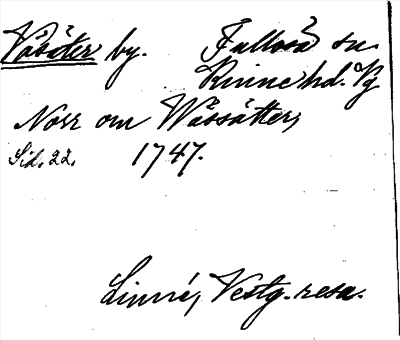 Våsäter by. Fullösa sn
Kinne hd. Vg
Norr om Wåssätter,
Sid. 22. 1747.
Linné, Vestg. resa.